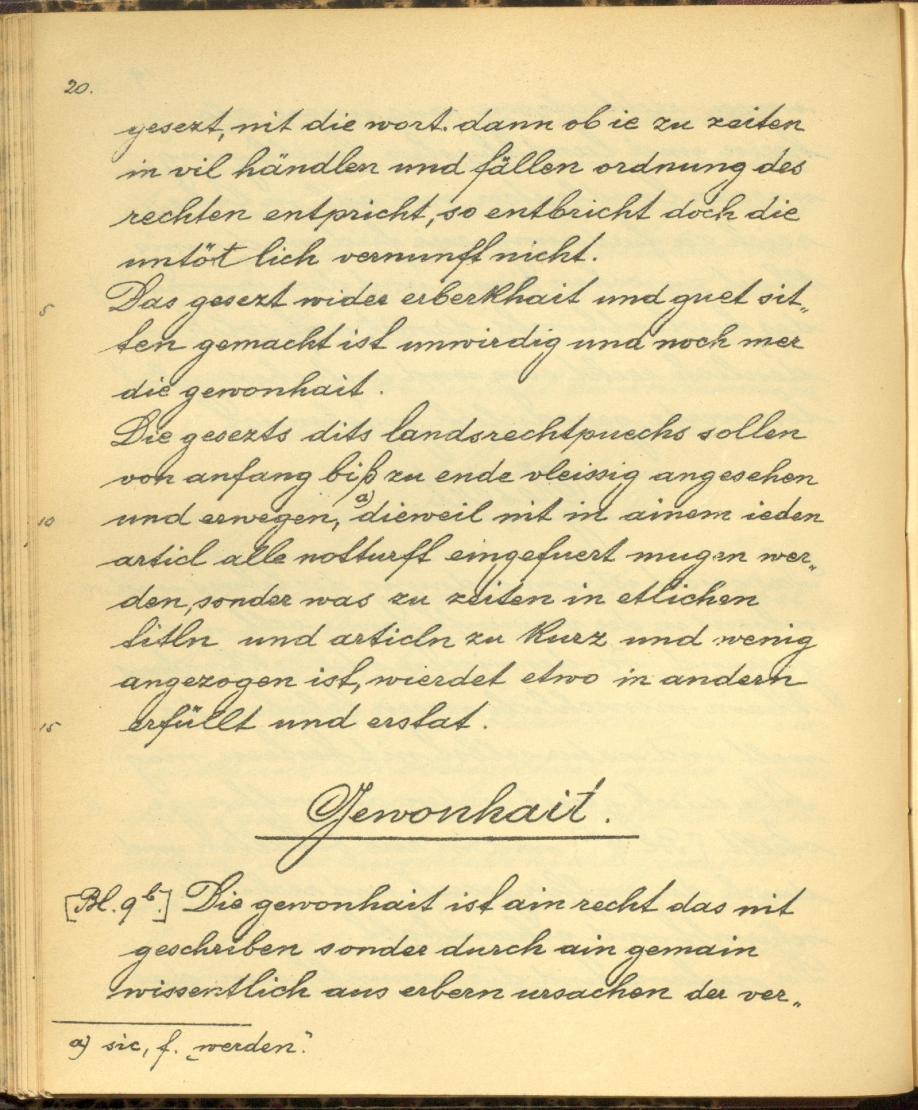 20.
gesezt, nit die wort. dann ob ie zu zeiten
in vil händlen und fällen ordnung des
rechten entpricht, so entbricht doch die
untötlich vernunfft nicht.
5
Das gesezt wider erberkhait und guet sit„
ten gemacht ist unwirdig und noch mer
die gewonhait.
Die gesezts dits landsrechtpuechs sollen
von anfang biß zu ende vleissig angesehen
10
und erwegen, a) dieweil nit in ainem ieden
articl alle notturfft eingefuert mugen wer„
den, sonder was zu zeiten in etlichen
titln und articln zu kurz und wenig
angezogen ist, wierdet etwo in andern
15
erfüllt und erstat.
Gewonhait.
[Bl. 9b.] Die gewonhait ist ain recht das nit
geschriben sonder durch ain gemain
wissentlich aus erbern ursachen der ver„
a) sic, f. „werden“.